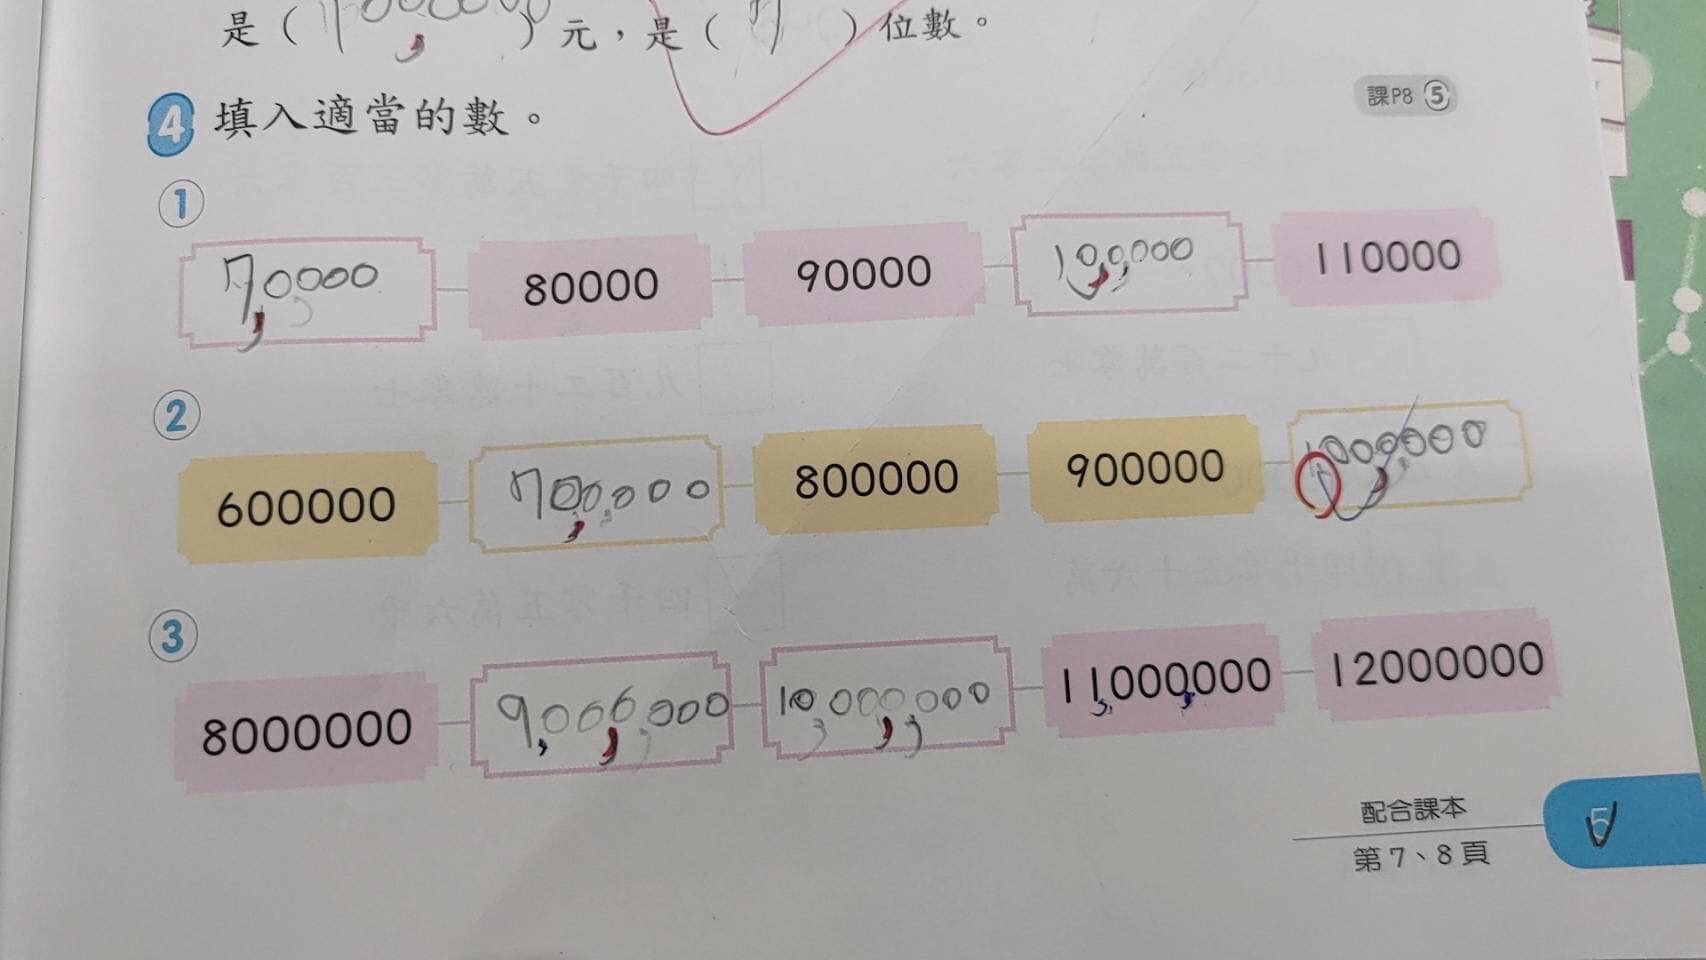 是( )元,是( )位數。
4 填入適當的數。 課P8 5
1
70000 80000 90000 100,000 110000
2
600000 700,000 800000 900000 1000,000
3
8000000 9,000,000 10,000,000 11,000,000 12000000
配合課本
第7、8頁
5